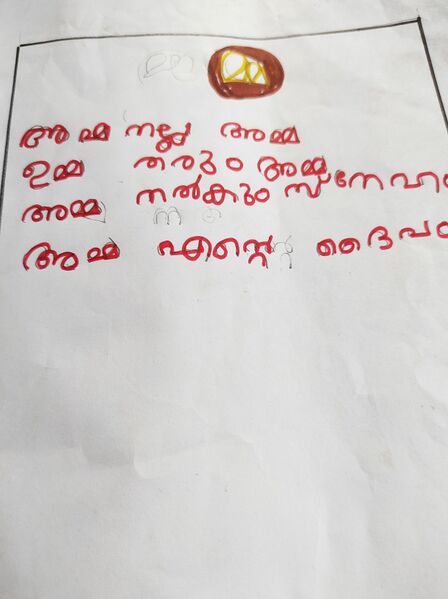 അമ്മ നല്ല അമ്മ
ഉമ്മ തരും അമ്മ
അമ്മ നൽകും സ്നേഹം
അമ്മ എന്റെ ദൈവം